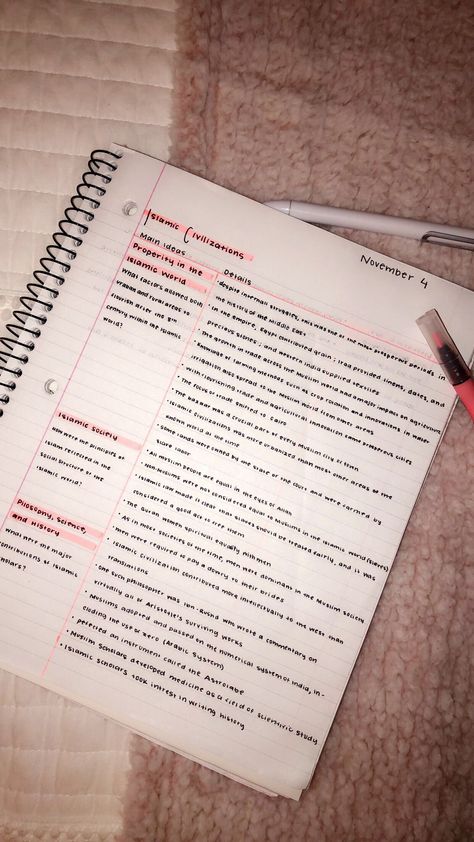 November 4
Islamic Civilizations
Main ideas
Details
Properity in the
Islamic World
What factors allowed both
urban and rural areas to
flourish after the 8th
century within the Islamic
world?
• despite internal struggles, this was one of the most prosperous periods in
the history of the middle east
• In the empire, Egypt contributed grain; Iraq provided linens, dates, and
precious stones; and western India supplied textiles
• The growth in trade across the Muslim world had a major impact on agriculture
• Knowledge of farming methods such as crop rotation and innovations in water
irrigation also spread to the Muslim world from other areas
• With flourishing trade and agricultural innovation came prosperous cities
• The focus of trade shifted to Cairo
• The bazaar was a crucial part of every muslim city or town
Islamic civilizations was more organized than most other areas of the
known world at the time
• Some lands were owned by the state or the court and were farmed by
slave labor
Islamic Society
How were the principles of
Islam reflected in the
social structure of the
Islamic world?
• All muslim people are equal in the eyes of Allah
• Non-muslims were not considered equal to muslims in the Islamic world
• Islamic law made it clear that slaves should be treated fairly, and it was
considered a good act to free them
• The Quran women spiritual equality with men
• As in most societies of the time, men were dominant in the Muslim society
• men were required to pay a dowry to their brides
Pilosophy, science,
and history
What were the major
contributions of Islamic
scholars?
• Islamic civilization contributed more intellectually to the west than
translations
• One such philosopher was Ibn-Rushd who wrote a commentary on
virtually all of Aristotle's surviving works
• Muslims adopted and passed on the numerical system of India, in-
cluding the use of zero (Arabic System)
• perfected an instrument called the Astrolabe
• Muslim scholars developed medicine as a field of scientific study
• Islamic scholars took intrest in writing history